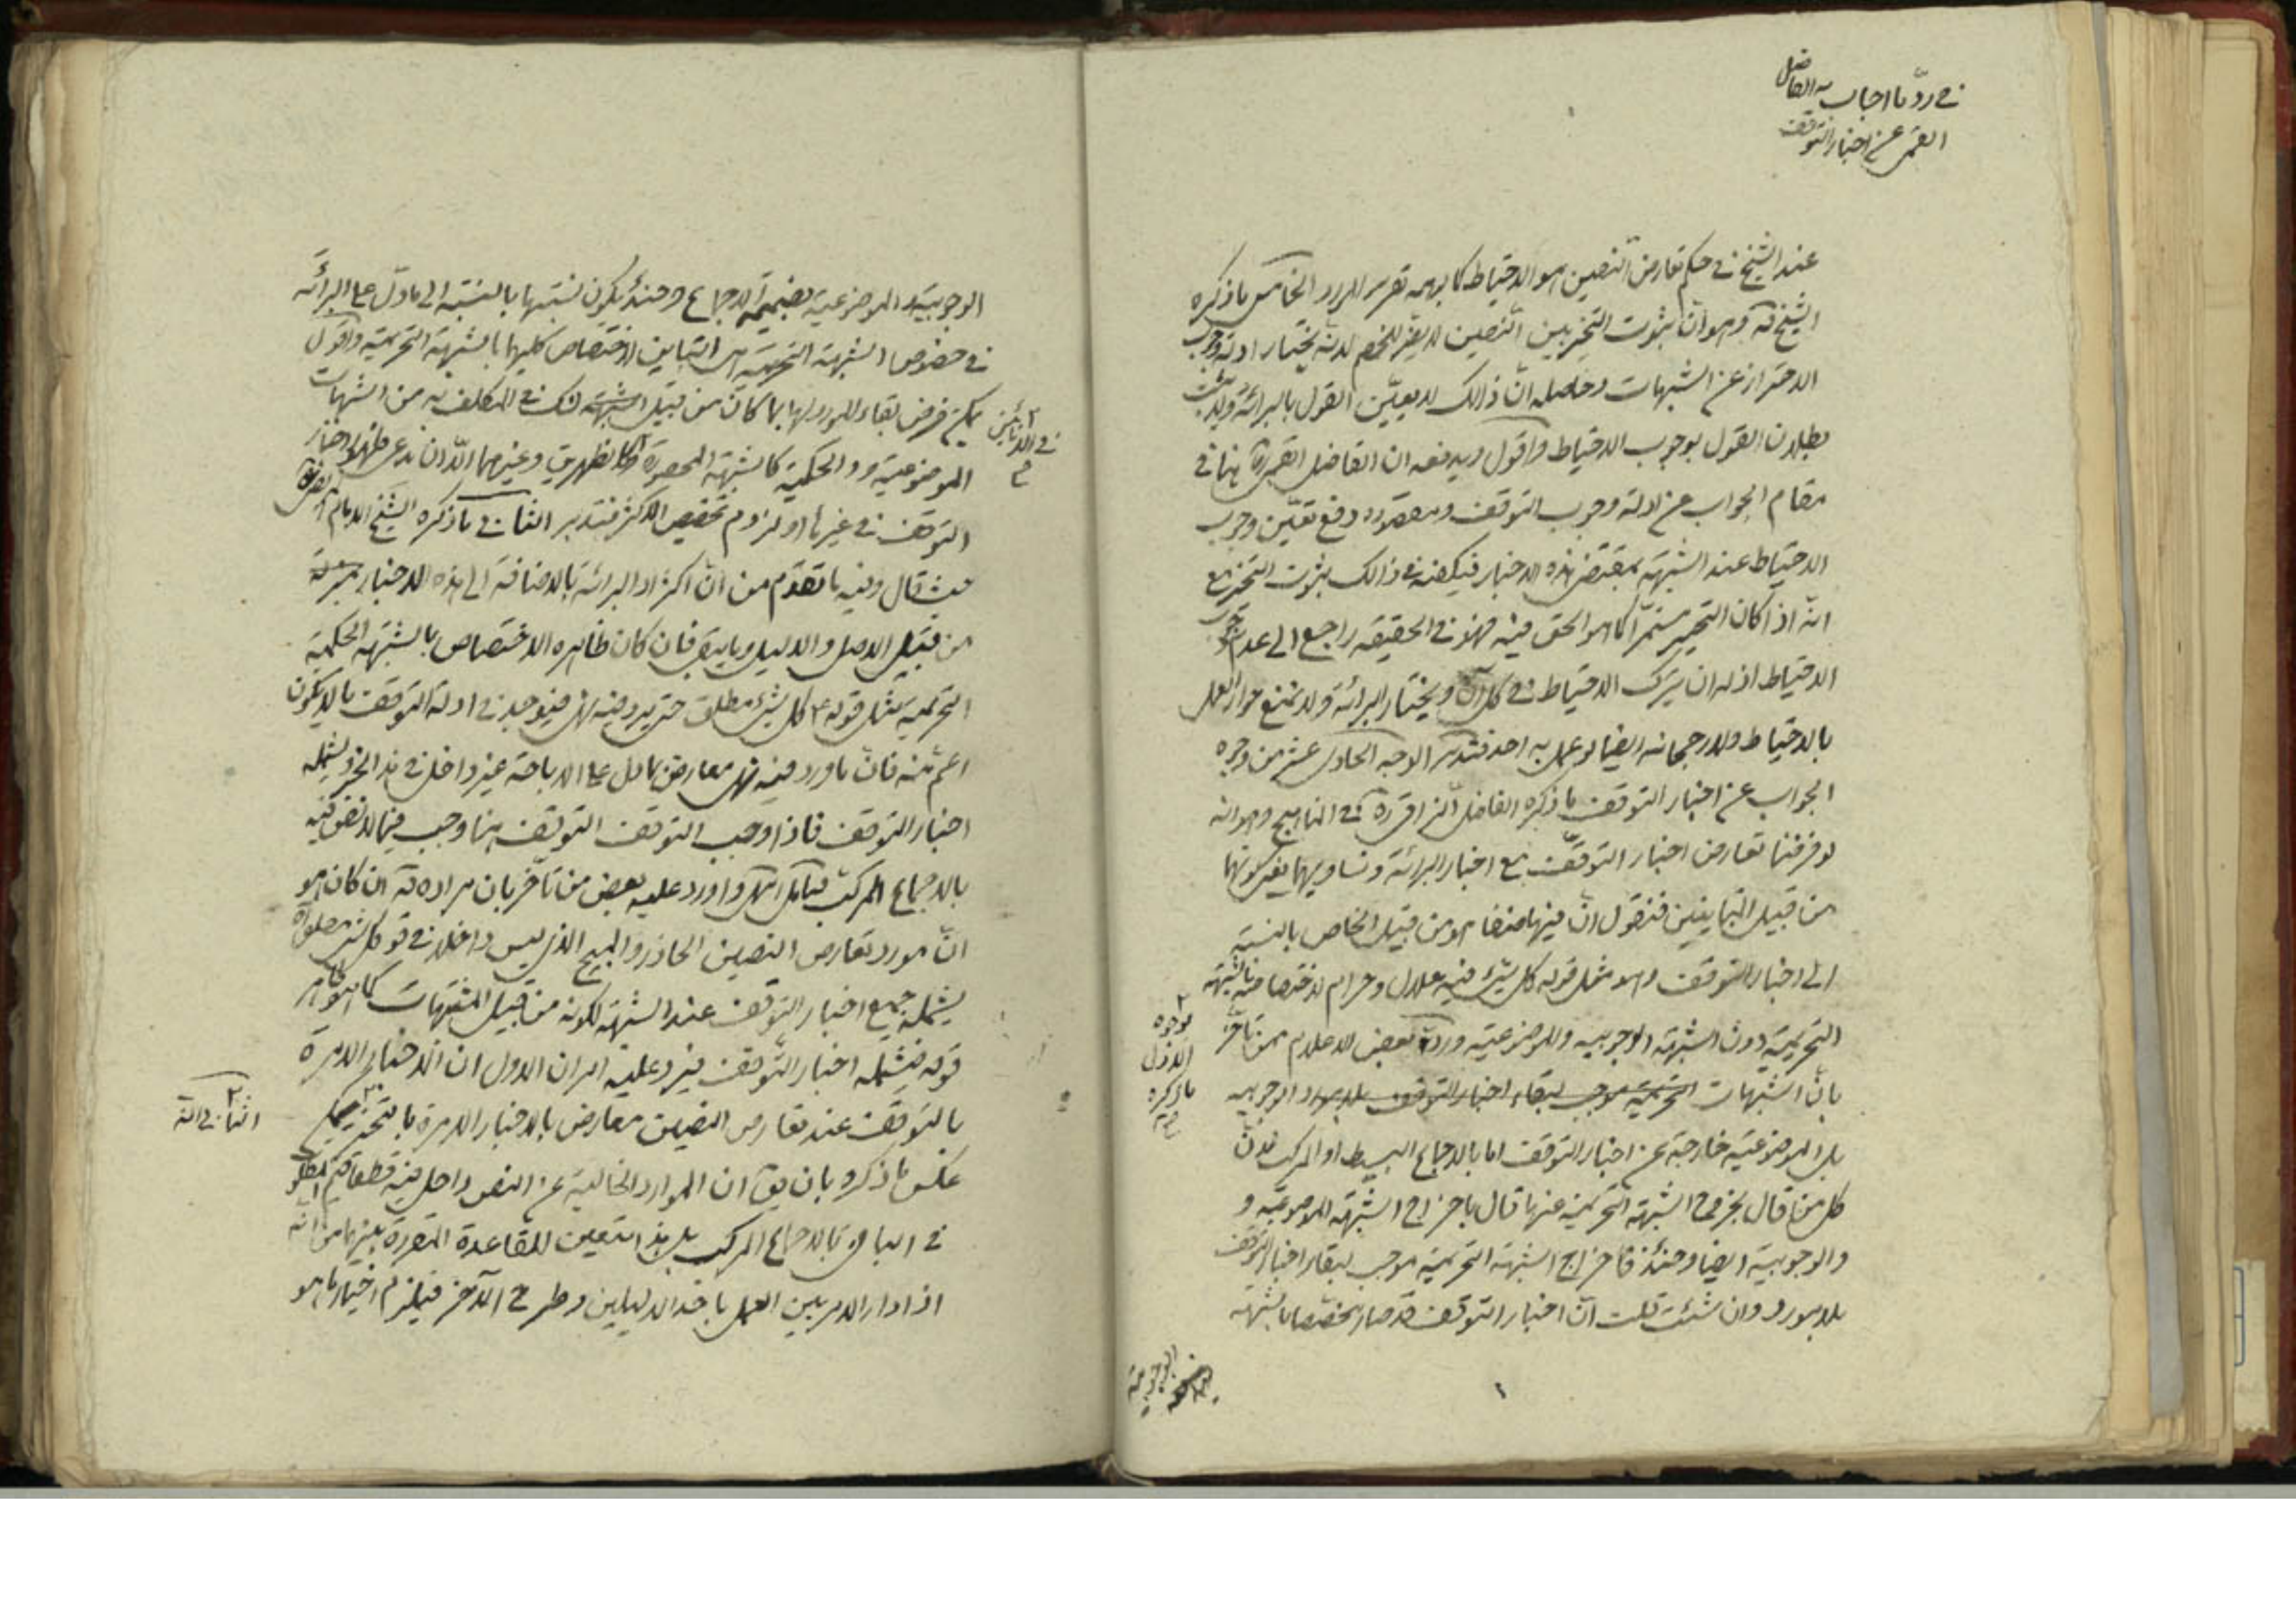 في ردّ ما اجاب به الفاضل
القمي عن اخبار التوقف
عند الشيخ في حكم تعارض النصين هو الاحتياط كما يوهمه تقرير المورد الخامس ما ذكره
الشيخ قه وهو ان ثبوت التخيير بين النصين لا يضر للخصم لانه يختار ادلة وجوب
الاحتراز عن الشبهات وحاصله انّ ذالك لا يعيّن القول بالبرائة ولا يثبت
بطلان القول بوجوب الاحتياط واقول ويدفعه ان الفاضل القمي ره هنا في
مقام الجواب عن ادلة وجوب التوقف ومقصوده دفع تعيّن وجوب
الاحتياط عند الشبهة بمقتضى هذه الاخبار فيكفيه في ذالك ثبوت التخيير مع
انّه اذا كان التخيير مستمرّا كما هو الحق فيه فهو في الحقيقه راجع الى عدم وجوب
الاحتياط اذ له ان يترك الاحتياط في كل آن ويختار البرائة ولا نمنع جواز العمل
بالاحتياط ولا رجحانه ايضا لو عمل به احد فتدبر الوجه الحادي عشر من وجوه
الجواب عن اخبار التوقف ما ذكره الفاضل النراقي ره في المناهج وهو انه
لو فرضنا تعارض اخبار التوقّف مع اخبار البرائة وتساويهما بغير كونهما
من قبيل المتباينين فنقول انّ فيها منها هو من قبيل الخاص بالنسبة
الى اخبار التوقف وهو مثل قوله كل شئ فيه حلال وحرام لاختصاصه بالشبهة
التحريمية دون الشبهة الوجوبيه والموضوعيّه وردّه بعض الاعلام ممن تأخّر
بوجوه
الاول
ما ذكره
بانّ الشبهات التحريمية موجب لبقاء اخبار التوقف بلا مورد الوجوبيه
بل الموضوعيّه خارجة عن اخبار التوقف اما بالاجماع البسيط او المركب لانّ
كل من قال بخروج الشبهة التحريمية عنها قال باخراج الشبهة الموضوعيّه و
والوجوبيّة ايضا وحنئذ فاخراج الشبهة التحريمية موجب لبقاء اخبار التوقف
بلا مورد وان شئت قلت انّ اخبار التوقف قد صار مختصا بالشبهة
الوجوبية
الوجوبيّة والموضوعية بضميمة الاجماع وحنئذ يكون نسبتها بالنسبة الى ما دلّ على البرائة
في خصوص الشبهة التحريمية هى التباين لاختصاص كليهما بالشبهة التحريمية واقول
يمكن فرض بقاء المورد لها بما كان من قبيل الشك في المكلف به من الشبهات
الموضوعيّة والحكمية كالشبهة المحصورة وكالظهرين وغيرهما الّا ان يدعى ظهور اخبار
التوقف في غيرها او لزوم تخصيص الاكثر فتدبر الثاني ما ذكره الشيخ الامام
حيث قال وفيه ما تقدّم من انّ اكثر ادلة البرائة بالاضافة الى هذه الاخبار
من قبيل الاصل والدليل وما يبقى فان كان ظاهره الاختصاص بالشبهة الحكمية
التحريمية مثل قوله ع كل شئ مطلق حتى يرد فيه نهى فيوجد في ادلة التوقف ما لا يكون
اعم منه فانّ ما ورد فيه نهى معارض بما دل على الاباحة غير داخل في هذا الخبر ويشمله
اخبار التوقف فاذا وجب التوقف التوقف هنا وجب فيما لا نص فيه
بالاجماع المركب فتأمل انتهى واورد عليه بعض من تأخّر بان مراده قه ان كان هو
انّ مورد تعارض النصين الحاظر والمبيح الذى ليس داخلا في قو كل شئ مطلق
يشمله جميع اخبار التوقف عند الشبهة لكونه من قبيل الشبهات كما هو ظاهر
قوله فيشمله اخبار التوقف فيرد عليه امران الاول ان الاخبار الامرة
بالتوقف عند تعارض النصين معارض بالاخبار الامرة بالتخيير
عكس ما ذكره بان يق ان الموارد الخالية عن النص داخل فيه قطعا
في الباقي بالاجماع المركب بل هذا متعين للقاعدة المقررة بينهم من انّه
اذا دار الامر بين العمل باحد الدليلين وطرح الآخر فيلزم اختيار ما هو